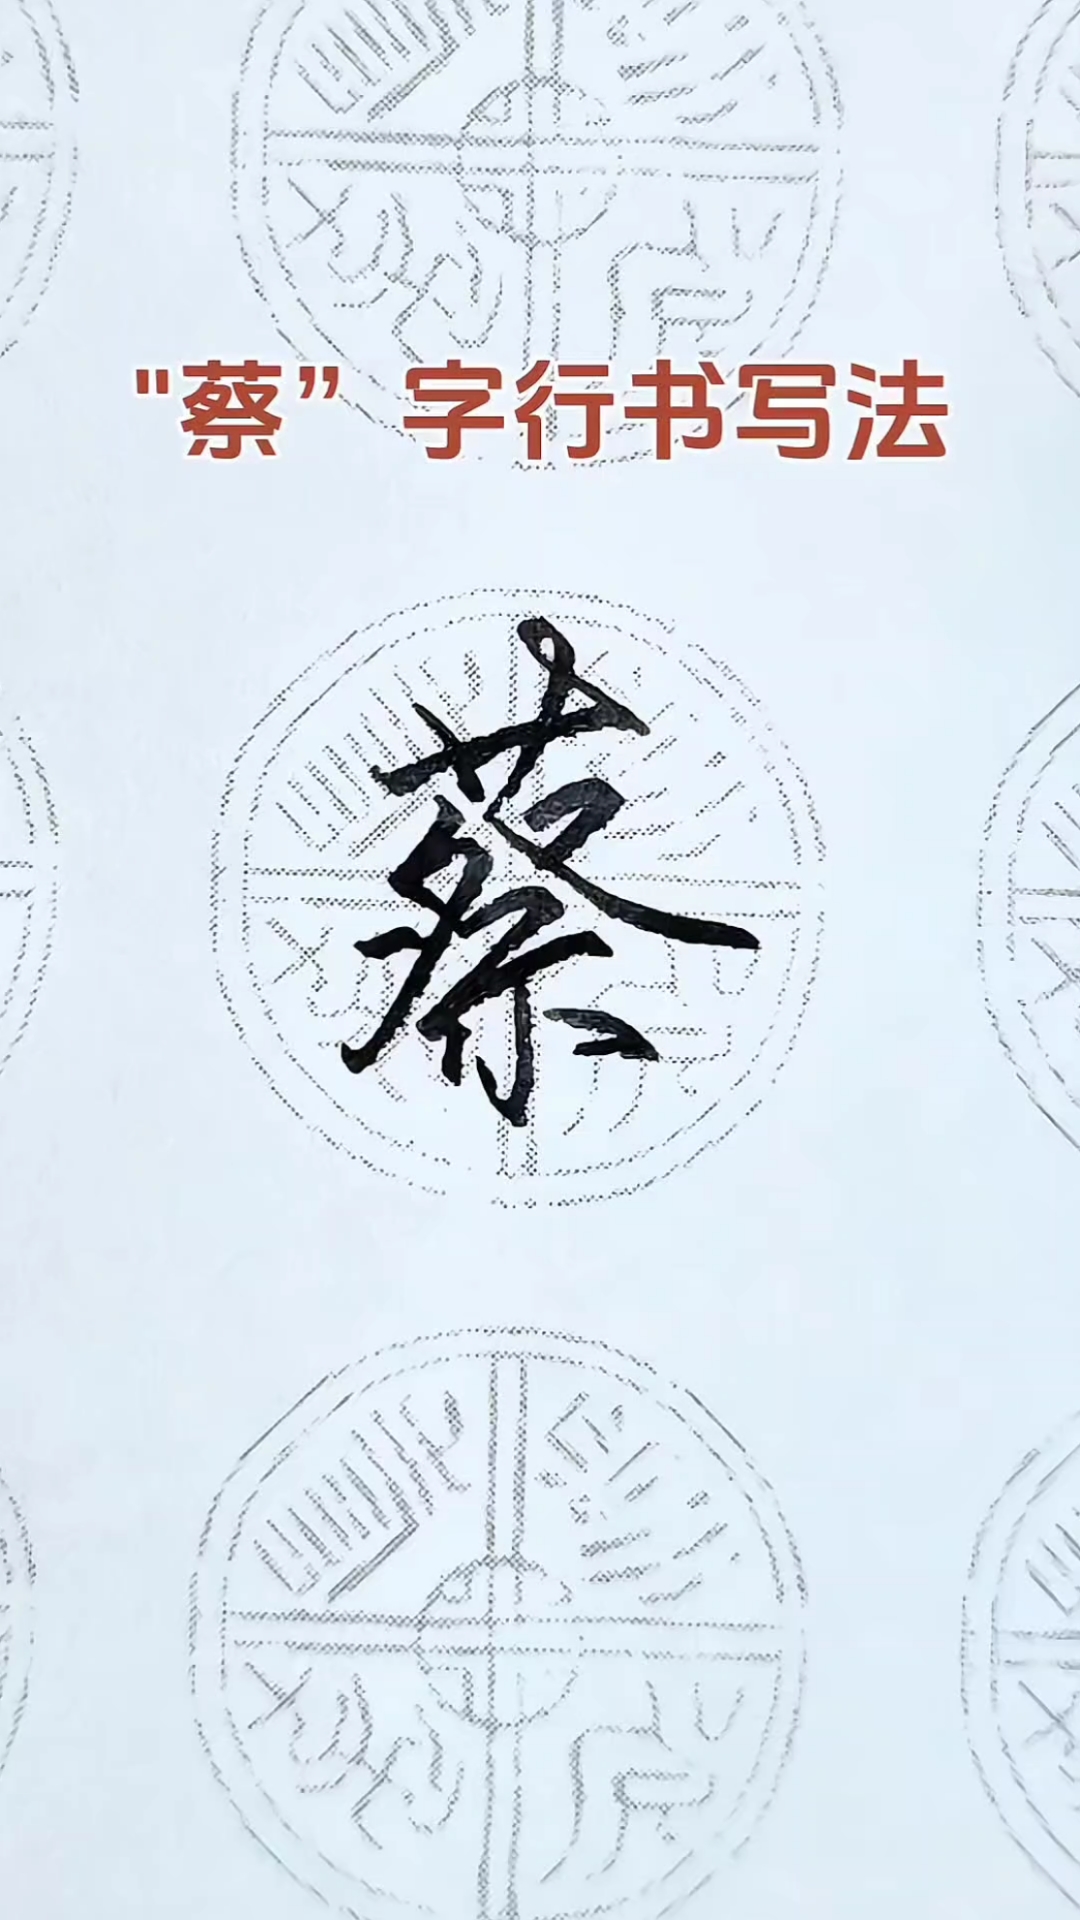 "蔡” 字行书写法
蔡